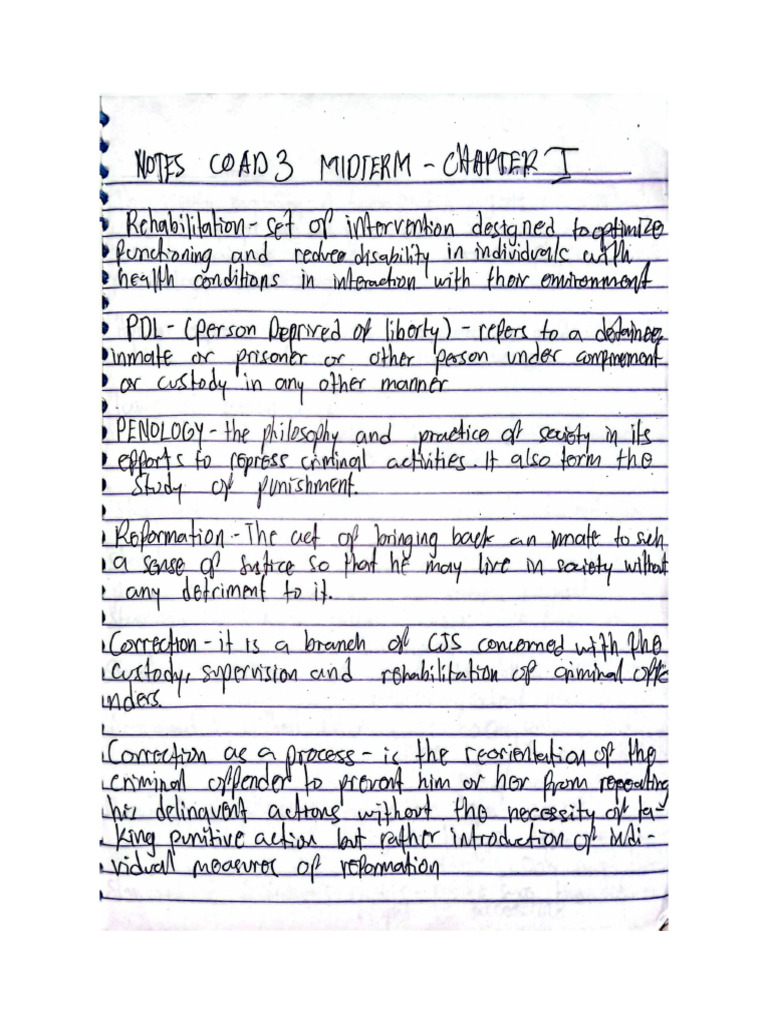 NOTES COAD3 MIDTERM - CHAPTER I
Rehabilitation - set of intervention designed to optimize
functioning and reduce disability in individuals with
health conditions in interaction with their environment
PDL - (Person Deprived of liberty) - refers to a detainee,
inmate or prisoner or other person under confinement
or custody in any other manner
PENOLOGY - the philosophy and practice of society in its
efforts to repress criminal activities. It also term the
study of punishment.
Reformation - The act of bringing back an inmate to such
a sense of Justice so that he may live in society without
any detriment to it.
Correction - it is a branch of CJS concerned with the
custody, supervision and rehabilitation of criminal offe
nders.
Correction as a process - is the reorientation of the
criminal offender to prevent him or her from repeating
his delinquent actions without the necessity of ta-
king punitive action but rather introduction of indi-
vidual measures of reformation